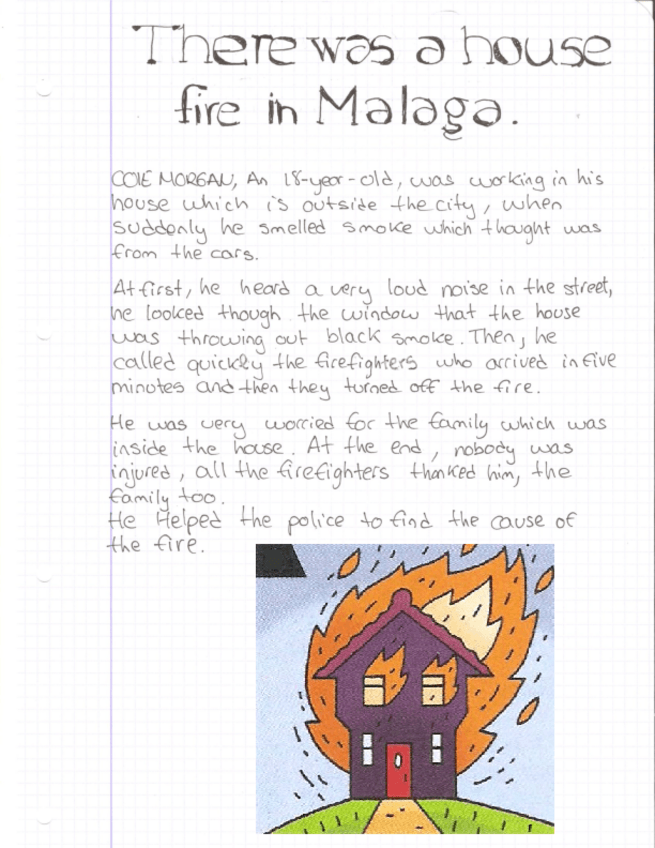 There was a house
fire in Malaga.
COLE MORGAN, An 18-year-old, was working in his
house which is outside the city, when
suddenly he smelled smoke which thought was
from the cars.
At first, he heard a very loud noise in the street,
he looked though the window that the house
was throwing out black smoke. Then, he
called quickly the firefighters who arrived in five
minutes and then they turned off the fire.
He was very worried for the family which was
inside the house. At the end, nobody was
injured, all the firefighters thanked him, the
family too.
He Helped the police to find the cause of
the fire.